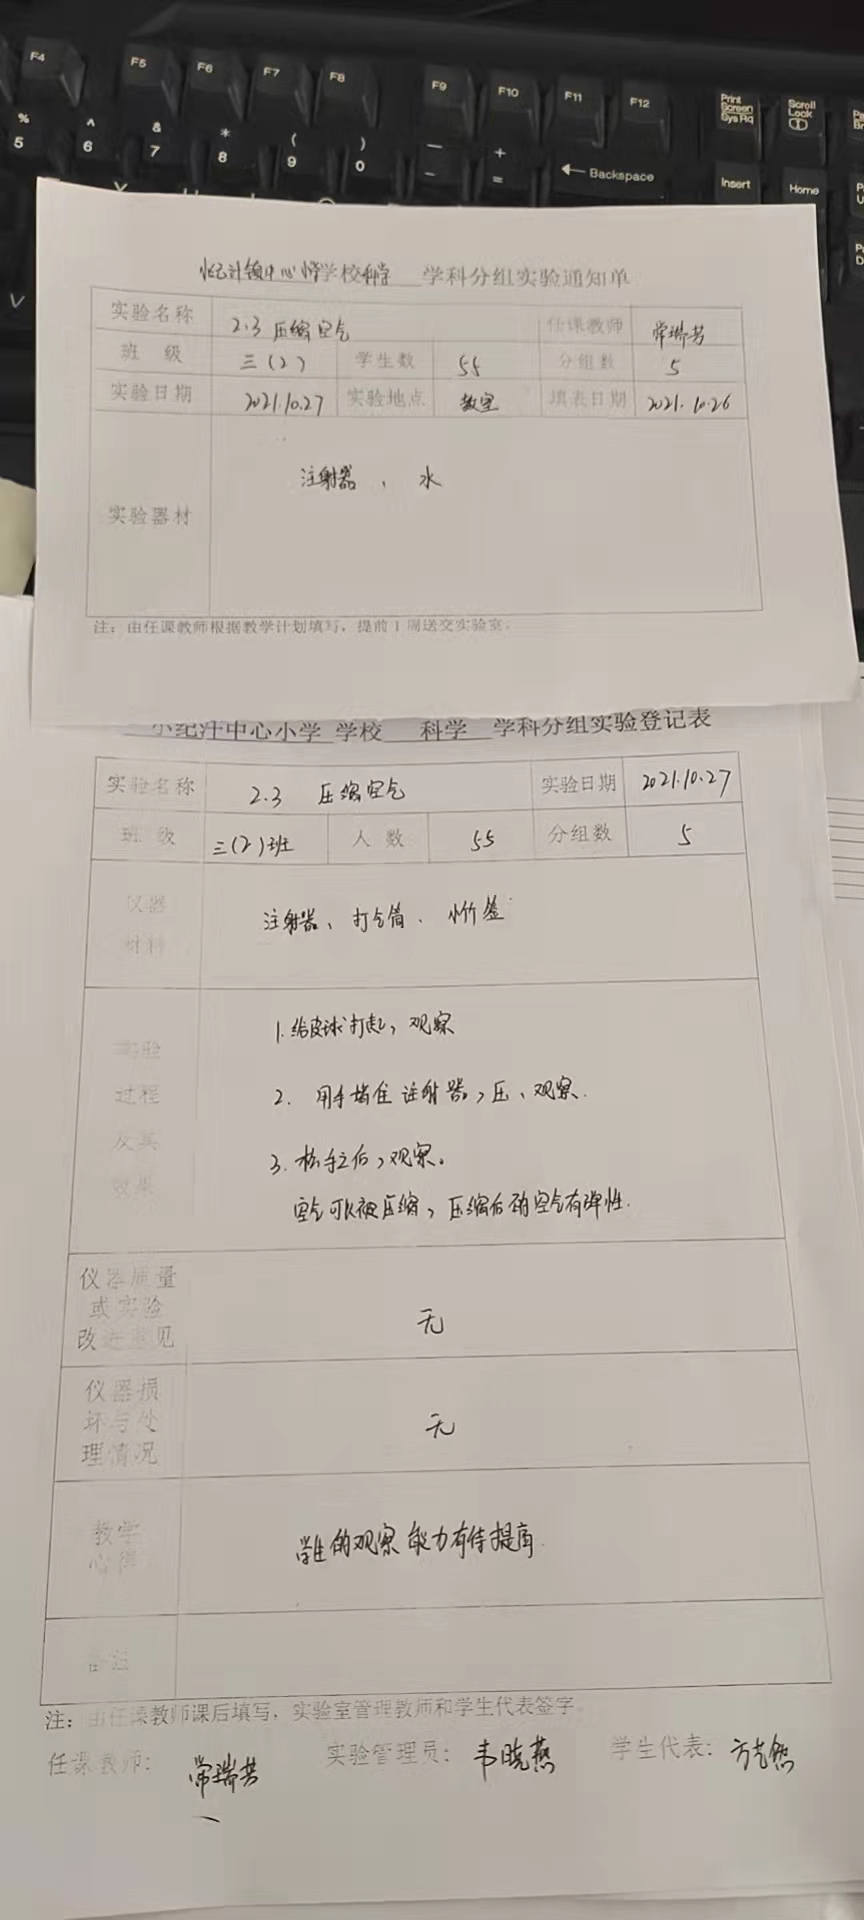 F4 F5 F6 F7 F8 F9 F10 F11 F12 Print Screen Sys Rq Scroll Lock
% 5 ^ 6 & 7 * 8 ( 9 ) 0 — - + = ← Backspace Insert Home
V
镇中心小学学校科学 学科分组实验通知单
实验名称 2.3 压缩空气 任课教师 常瑞芳
班 级 三(2) 学生数 55 分组数 5
实验日期 2021.10.27 实验地点 教室 填表日期 2021.10.26
实验器材 注射器、水
注:由任课教师根据教学计划填写,提前1周送交实验室。
小纪汗中心小学 学校 科学 学科分组实验登记表
实验名称 2.3 压缩空气 实验日期 2021.10.27
班 级 三(2)班 人 数 55 分组数 5
仪器
材料
注射器、打气筒、
1.给皮球打起,观察
实验
过程
及其
效果
2. 用手堵住注射器,压、观察.
3.松手之后,观察。
空气可以被压缩,压缩后的空气有弹性.
仪器质量
或实验
改进意见
无
仪器损
坏与处
理情况
无
教学
心得
学生的观察能力有待提高.
备注
注:由任课教师课后填写,实验室管理教师和学生代表签字。
任课教师: 常瑞芳 实验管理员: 韦晓燕 学生代表: